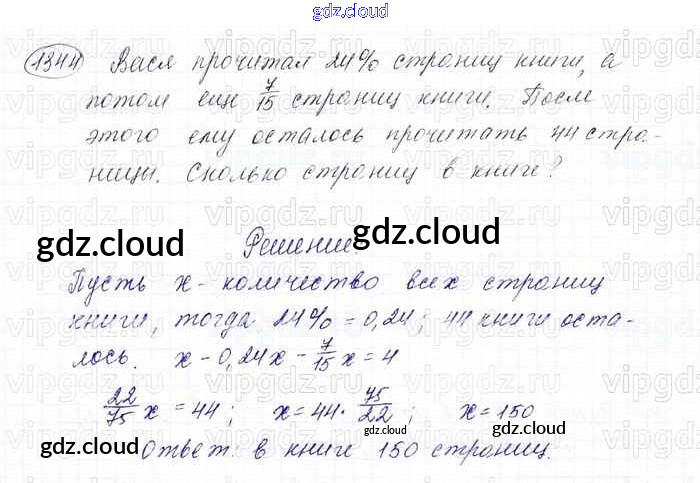 gdz.cloud
1344 Вася прочитал 24% страниц книги, а
потом еще 7/15 страниц книги. После
этого ему осталось прочитать 44 стра-
ницы. Сколько страниц в книге?
gdz.cloud gdz.cloud
Решение.
Пусть x - количество всех страниц
книги, тогда 24% = 0,24; 44 книги оста-
лось. x - 0,24x - 7/15 x = 4
22/75 x = 44; x = 44 · 75/22; x = 150
gdz.cloud gdz.cloud
Ответ: в книге 150 страниц.
gdz.cloud